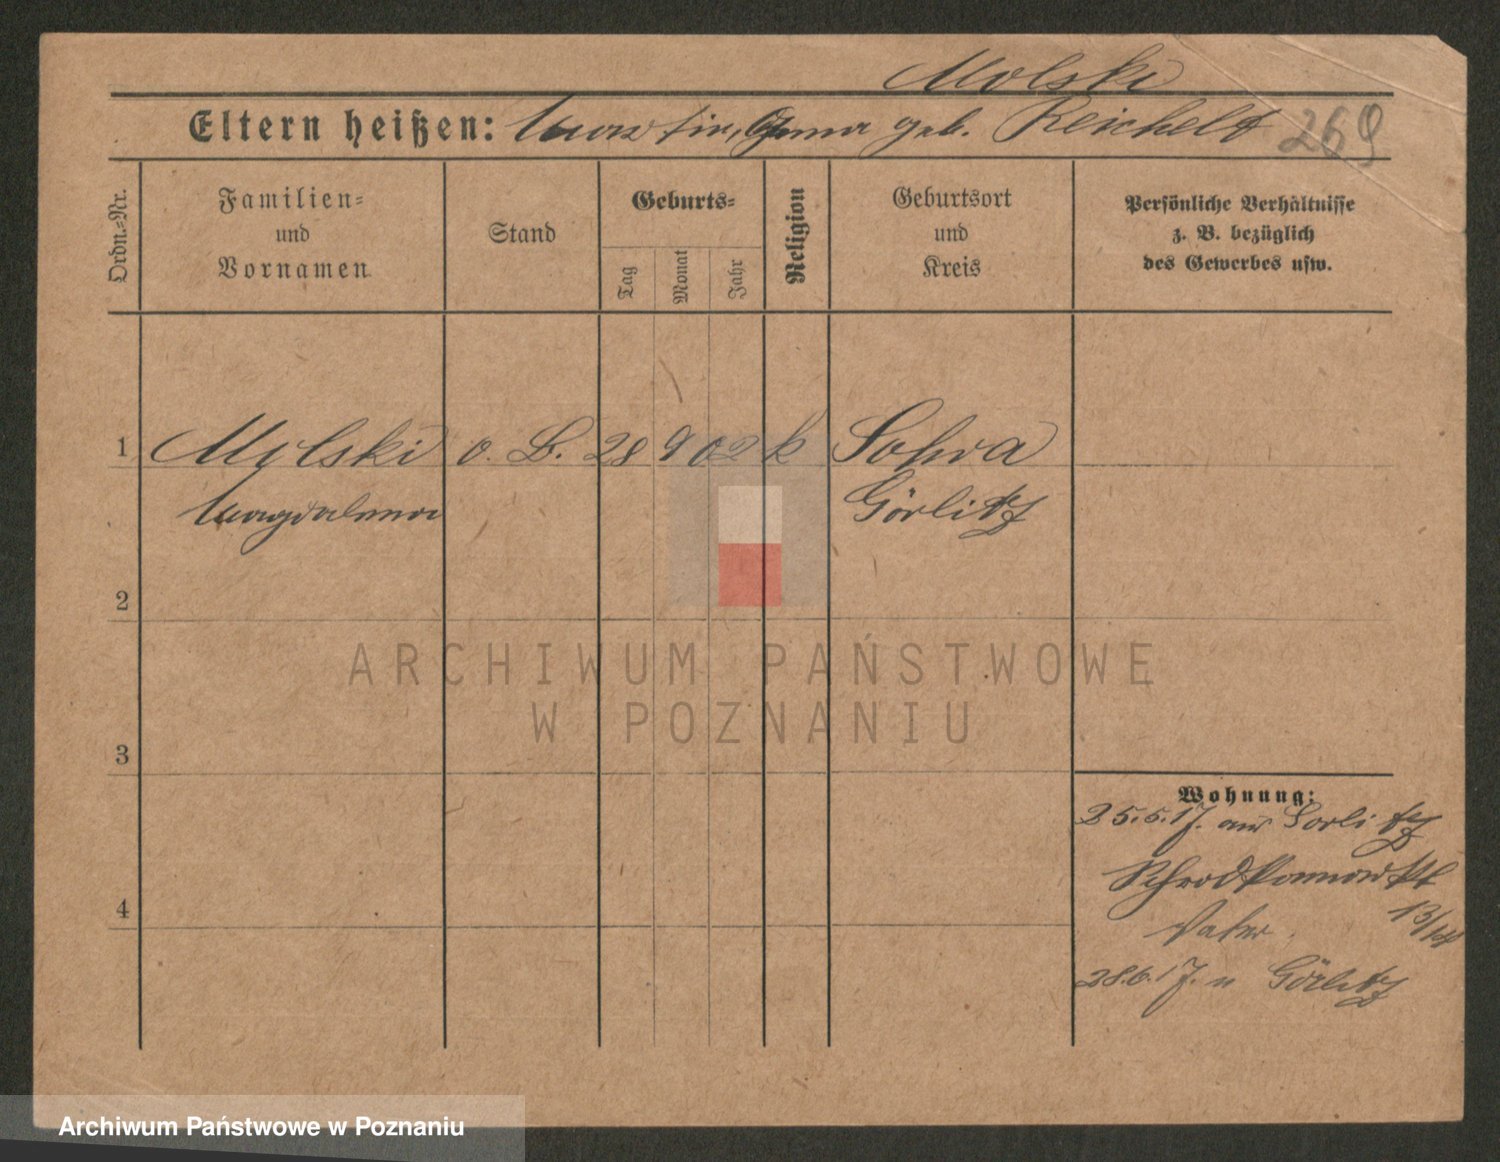 Molski
Eltern heißen: Martin, Anna geb. Reichelt 269
Ordn.-Nr.
Familien-
und
Vornamen
Stand
Geburts-
Tag
Monat
Jahr
Religion
Geburtsort
und
Kreis
Persönliche Verhältnisse
z. B. bezüglich
des Gewerbes usw.
1 Molski o. B. 28 9 02 k Sohra
Magdalena Görlitz
2
3
4
Wohnung:
25.5.17. aus Görlitz
13/14
Vater.
28.6.17. n Görlitz
ARCHIWUM PAŃSTWOWE
W POZNANIU
Archiwum Państwowe w Poznaniu